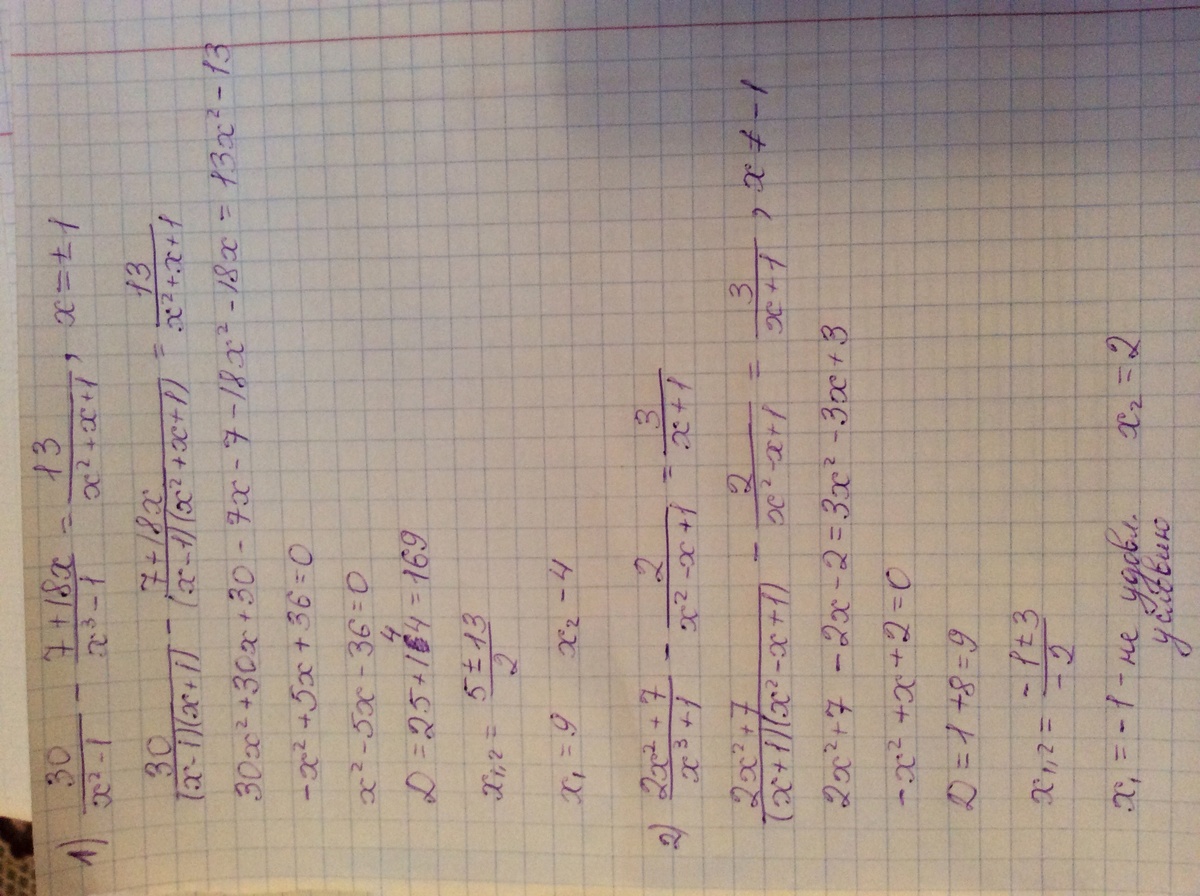 1) 30/(x²-1) - (7+18x)/(x³-1) = 13/(x²+x+1), x=±1
30/((x-1)(x+1)) - (7+18x)/((x-1)(x²+x+1)) = 13/(x²+x+1)
30x²+30x+30-7x-7-18x²-18x=13x²-13
-x²+5x+36=0
x²-5x-36=0
D=25+144=169
x₁,₂= (5±13)/2
x₁=9 x₂-4
2) (2x²+7)/(x³+1) - 2/(x²-x+1) = 3/(x+1)
(2x²+7)/((x+1)(x²-x+1)) - 2/(x²-x+1) = 3/(x+1), x≠-1
2x²+7-2x-2=3x²-3x+3
-x²+x+2=0
D=1+8=9
x₁,₂= (-1±3)/-2
x₁=-1-не удовл. x₂=2
условию